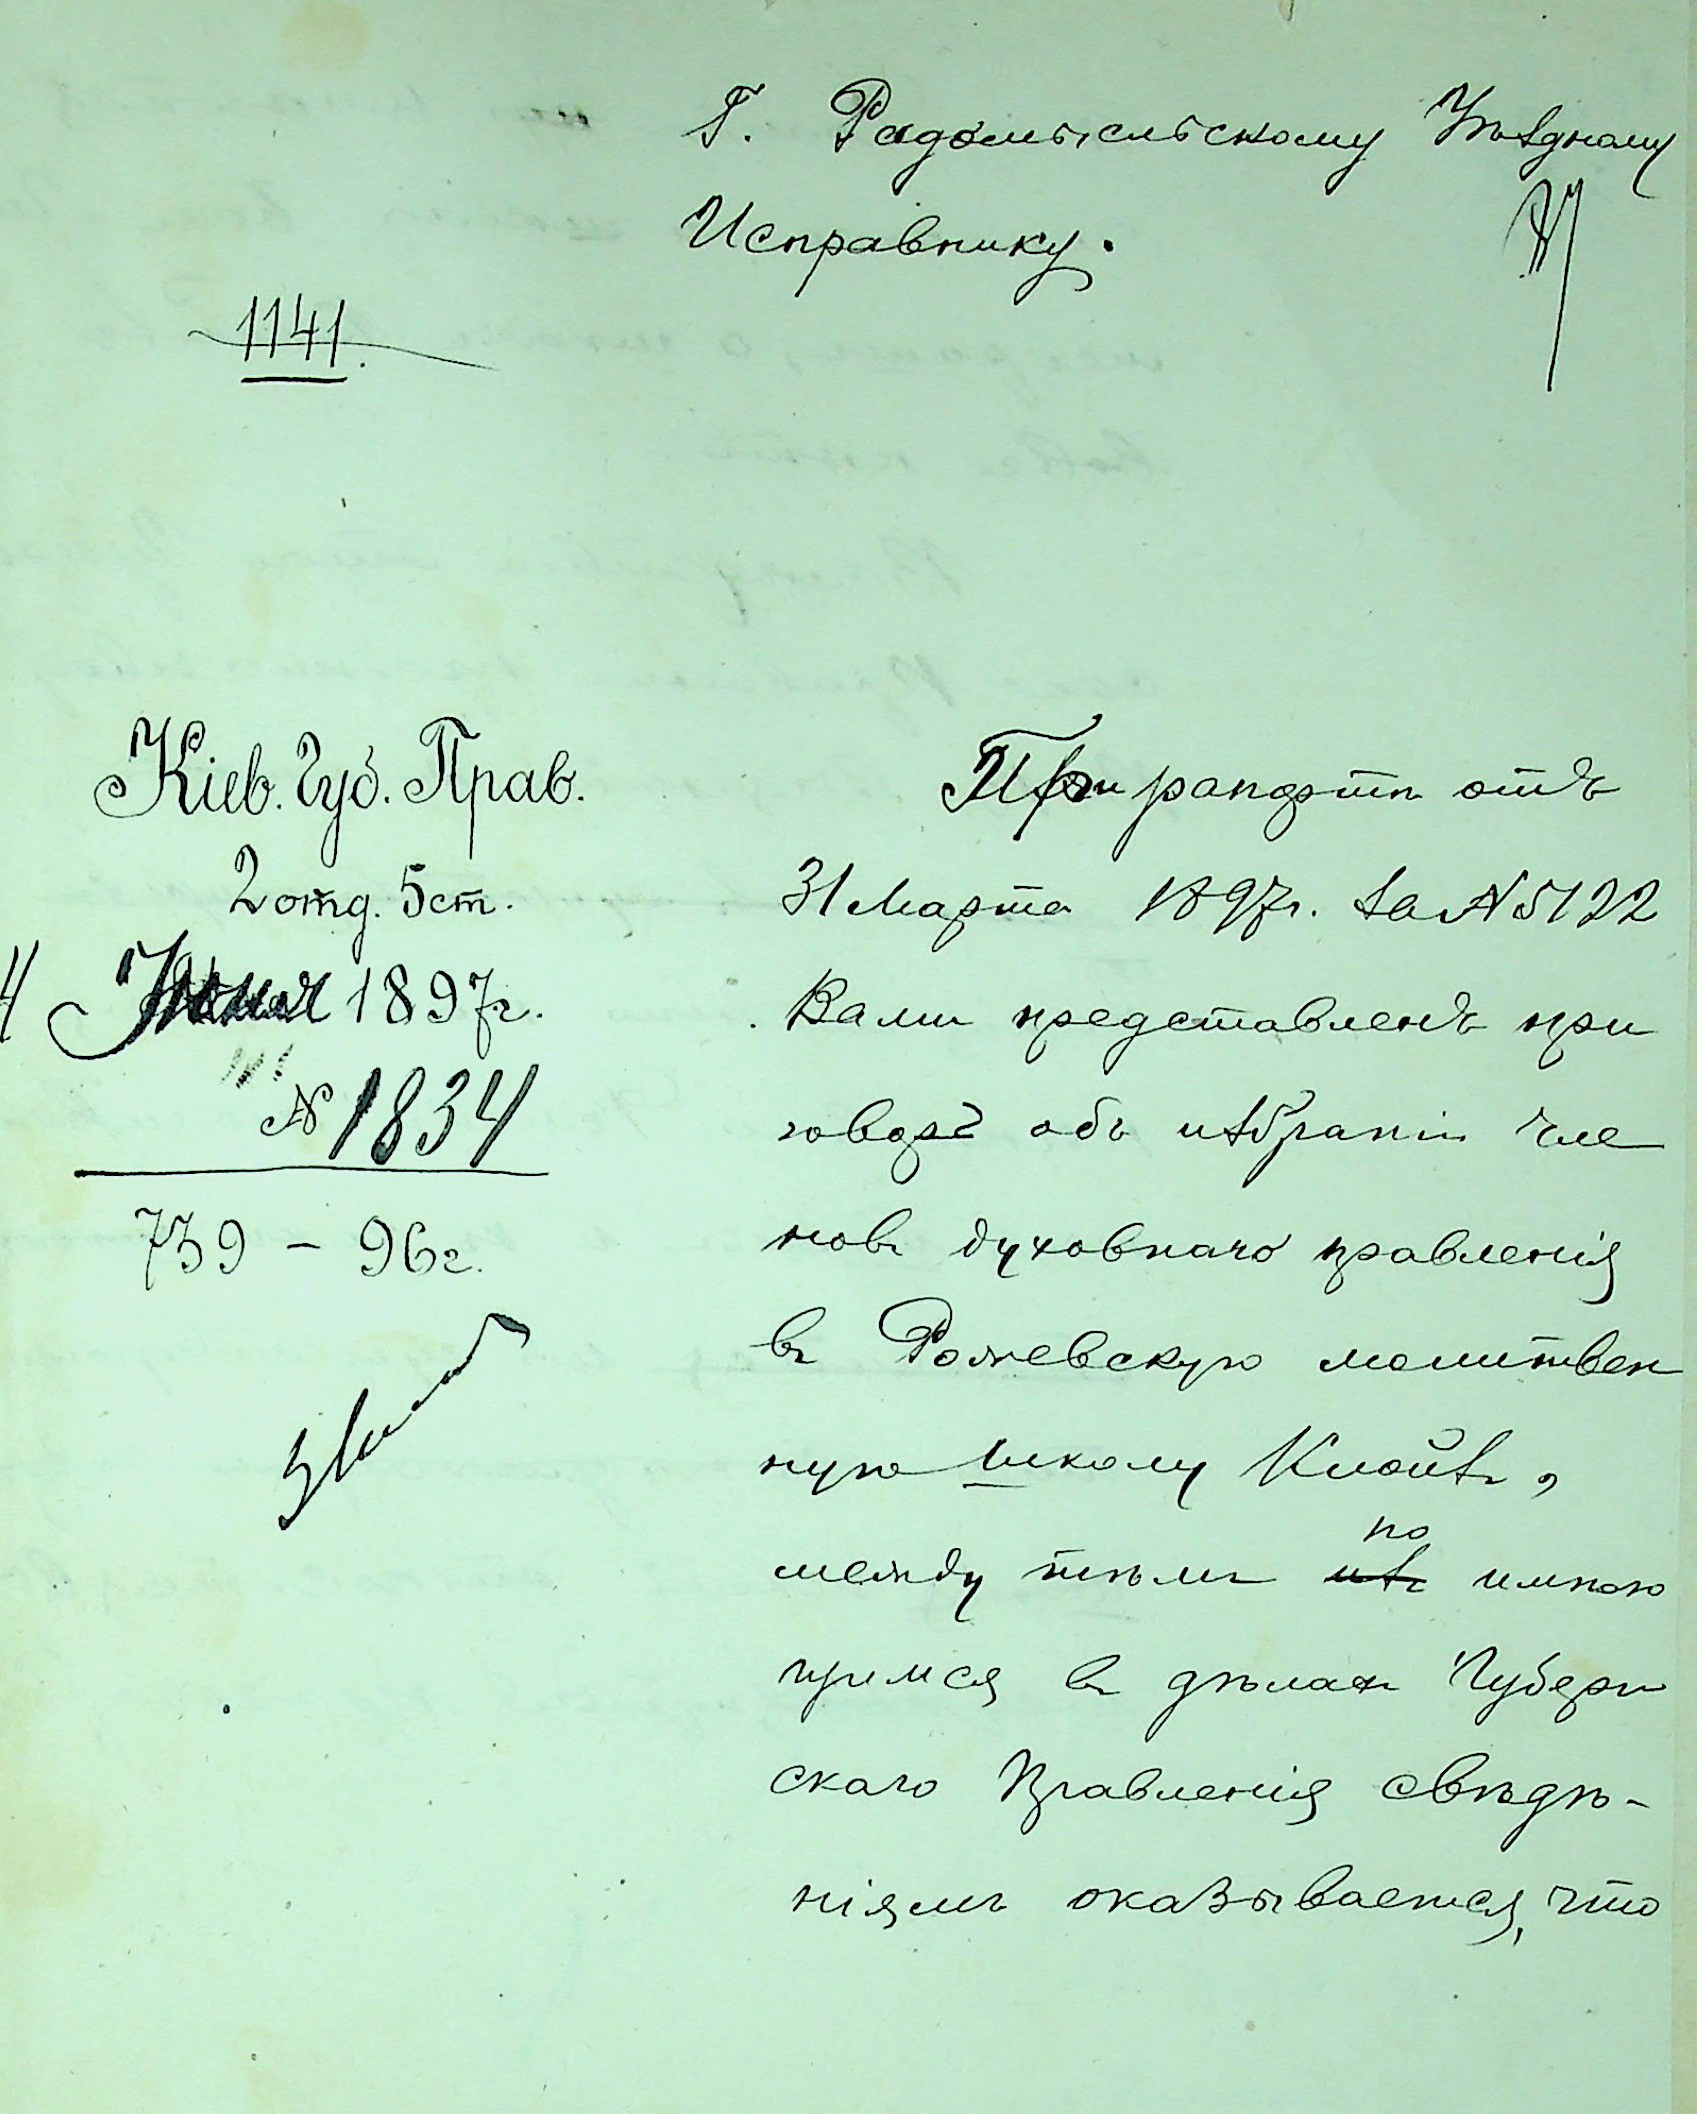 Г. Радомысльскому Уѣздному
Исправнику.
1141.
Кіев. Губ. Прав.
2 отд. 5 ст.
4 Іюня 1897 г.
№ 1834
739 – 96 г.
При рапортѣ отъ
31 Марта 1897 г. за № 5122
Вами представленъ при
говоръ объ избраніи чле
новъ духовнаго правленія
въ Рожевскую молитвен
ную школу Клойзъ,
по
между тѣмъ изъ имѣю
щимся въ дѣлахъ Губерн
скаго Правленія свѣдѣ-
ніямъ оказывается, что